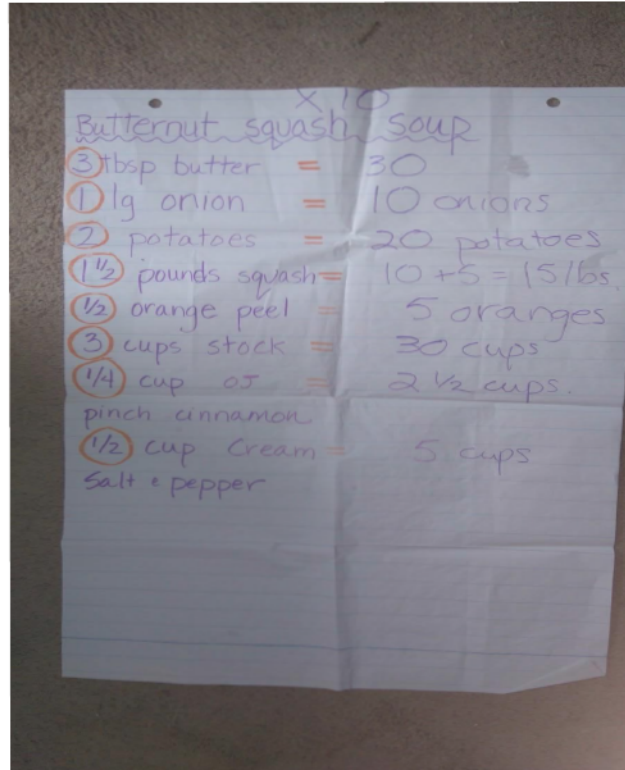 x 10
Butternut squash soup
3 tbsp butter = 30
1 lg onion = 10 onions
2 potatoes = 20 potatoes
1 1/2 pounds squash = 10 + 5 = 15 lbs.
1/2 orange peel = 5 oranges
3 cups stock = 30 cups
1/4 cup OJ = 2 1/2 cups.
pinch cinnamon
1/2 cup cream = 5 cups
Salt & pepper